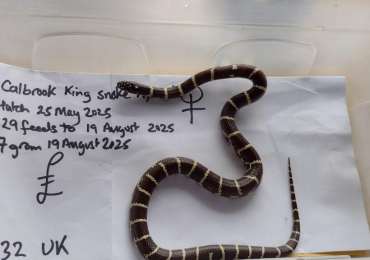 Calbrook King Snake ♀
Hatch 25 May 2025
29 feeds to 19 August 2025
7 gram 19 August 2025
£
32 UK